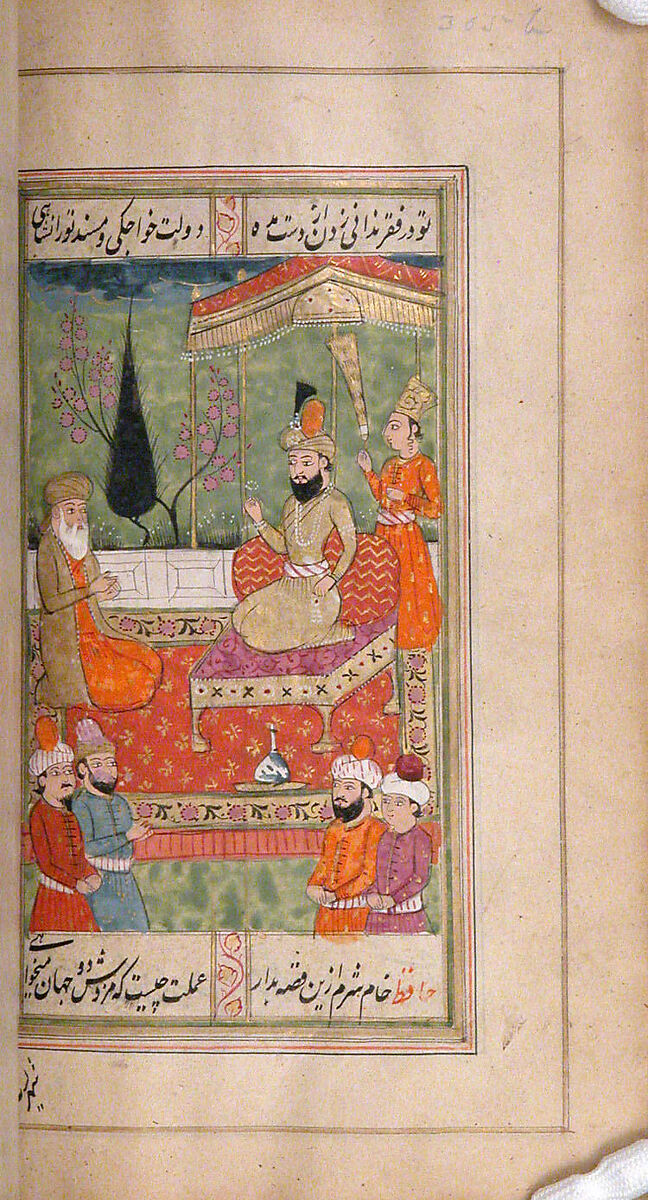 365 b
تو در فقر ندانی زدن از دست مده
دولت خواجگی و مسند تورانشاهی
حافظ خام شرم ازین قصه بدار
عملت چیست که مزدش دو جهان میخواهی